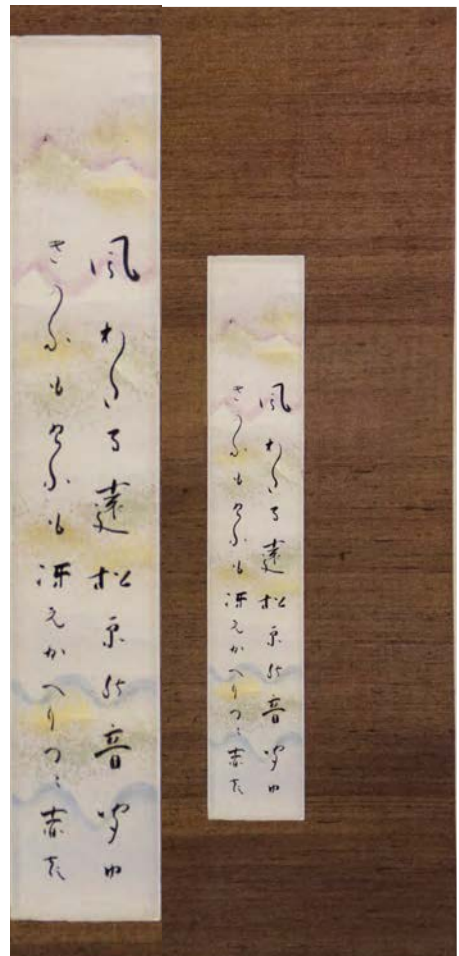 風わたる遠松原の音聞ゆ
きのふもけふも冴えかへりつゝ赤彦
風わたる遠松原の音聞ゆ
きのふもけふも冴えかへりつゝ赤彦